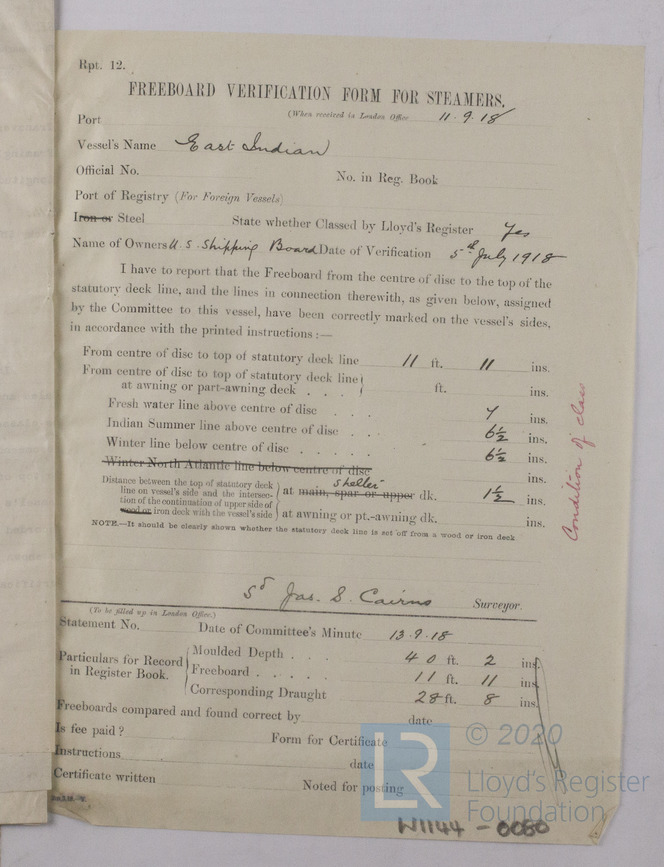 Rpt. 12.
FREEBOARD VERIFICATION FORM FOR STEAMERS.
(When received in London Office 11.9.18
Port
Vessel's Name East Indian
Official No. No. in Reg. Book
Port of Registry (For Foreign Vessels)
Iron or Steel State whether Classed by Lloyd's Register Yes
Name of Owners U.S. Shipping Board Date of Verification 5th July 1918
I have to report that the Freeboard from the centre of disc to the top of the
statutory deck line, and the lines in connection therewith, as given below, assigned
by the Committee to this vessel, have been correctly marked on the vessel's sides,
in accordance with the printed instructions :—
From centre of disc to top of statutory deck line 11 ft. 11 ins.
From centre of disc to top of statutory deck line
at awning or part-awning deck . . . ft. ins.
Fresh water line above centre of disc . . . 7 ins.
Indian Summer line above centre of disc . . . 6½ ins.
Winter line below centre of disc . . . . . 6½ ins.
Winter North Atlantic line below centre of disc ins.
Distance between the top of statutory deck
line on vessel's side and the intersec-
tion of the continuation of upper side of
wood or iron deck with the vessel's side
shelter
at main, spar or upper dk. 1½ ins.
at awning or pt.-awning dk. ins.
NOTE.—It should be clearly shown whether the statutory deck line is set off from a wood or iron deck
Condition of class
Sd Jas. S. Cairns Surveyor.
(To be filled up in London Office.)
Statement No. Date of Committee's Minute 13.9.18
Particulars for Record
in Register Book.
Moulded Depth . . . 40 ft. 2 ins.
Freeboard . . . . . 11 ft. 11 ins.
Corresponding Draught 28 ft. 8 ins.
Freeboards compared and found correct by date
Is fee paid? Form for Certificate
Instructions date
Certificate written Noted for posting
LR
© 2020
Lloyd's Register
Foundation
W1144 - 0080